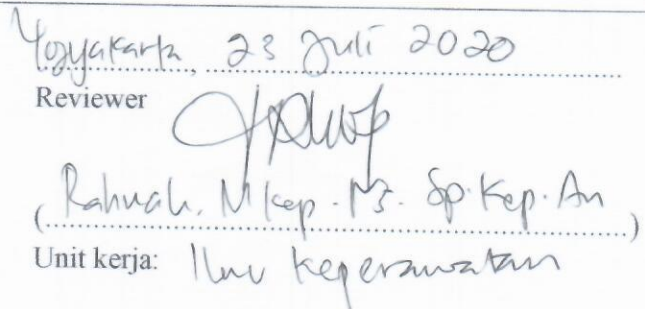 Yogyakarta, 23 Juli 2020
Reviewer
(Rahmah. M Kep. Ns. Sp. Kep. An)
Unit kerja: Ilmu Keperawatan